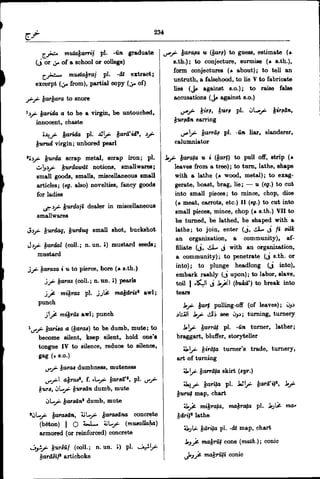 234
خريج muḵarrij pl. -ūn graduate
(ل or من of a school or college)
مستخرج mustaḵraj pl. -āt extract;
excerpt (من from), partial copy (من of)
خرخر ḵarḵara to snore
¹خرد ḵarida a to be a virgin, be untouched,
innocent, chaste
خريدة ḵarīda pl. خرائد ḵarā'id², خرد
ḵurud virgin; unbored pearl
²خردة ḵurda scrap metal, scrap iron; pl.
خردوات ḵurdawāt notions, smallwares;
small goods, smalls, miscellaneous small
articles; (eg. also) novelties, fancy goods
for ladies
خردجي ḵurdajī dealer in miscellaneous
smallwares
خردق ḵurdaq, ḵurduq small shot, buckshot
خردل ḵardal (coll.; n. un. ة) mustard seeds;
mustard
خرز ḵaraza i u to pierce, bore (ه s.th.)
خرز ḵaraz (coll.; n. un. ة) pearls
مخرز miḵraz pl. مخارز maḵāriz² awl;
punch
مخراز miḵrāz awl; punch
¹خرس ḵarisa a (ḵaras) to be dumb, mute; to
become silent, keep silent, hold one's
tongue IV to silence, reduce to silence,
gag (ه s.o.)
خرس ḵaras dumbness, muteness
أخرس aḵras², f. خرساء ḵarsā'², pl. خرس
ḵurs, خرسان ḵursān dumb, mute
خرسان ḵarsān² dumb, mute
²خرسان ḵarasān, خرسانة ḵarasāna concrete
(béton) | خرسانة مسلحة (musallaḥa)
armored (or reinforced) concrete
خرشوف ḵuršūf (coll.; n. un. ة) pl. خراشيف
ḵarāšīf² artichoke
خرص ḵaraṣa u (ḵarṣ) to guess, estimate (ه
s.th.); to conjecture, surmise (ه s.th.),
form conjectures (ه about); to tell an
untruth, a falsehood, to lie V to fabricate
lies (على against s.o.); to raise false
accusations (على against s.o.)
خرص ḵirṣ, ḵurṣ pl. خرصان ḵirṣān,
ḵurṣān earring
خراص ḵarrāṣ pl. -ūn liar, slanderer,
calumniator
خرط ḵaraṭa u i (ḵarṭ) to pull off, strip (ه
leaves from a tree); to turn, lathe, shape
with a lathe (ه wood, metal); to exag-
gerate, boast, brag, lie; — u (eg.) to cut
into small pieces; to mince, chop, dice
(ه meat, carrots, etc.) II (eg.) to cut into
small pieces, mince, chop (ه s.th.) VII to
be turned, be lathed, be shaped with a
lathe; to join, enter (في سلك, في fī silk
an organization, a community), af-
filiate (في سلك, في with an organization,
a community); to penetrate (في s.th. or
into); to plunge headlong (في into),
embark rashly (في upon); to labor, slave,
toil | انخرط في البكاء (bukā') to break into
tears
خرط ḵarṭ pulling-off (of leaves); دون
خرط القتاد see دون; turning, turnery
خراط ḵarrāṭ pl. -ūn turner, lather;
braggart, bluffer, storyteller
خراطة ḵirāṭa turner's trade, turnery,
art of turning
خراطة ḵarrāṭa skirt (syr.)
خريطة ḵarīṭa pl. خرائط ḵarā'iṭ², خرط
ḵuruṭ map, chart
مخرطة miḵraṭa, maḵraṭa pl. مخارط ma-
ḵāriṭ² lathe
خارطة ḵāriṭa pl. -āt map, chart
مخروط maḵrūṭ cone (math.); conic
مخروطي maḵrūṭī conic